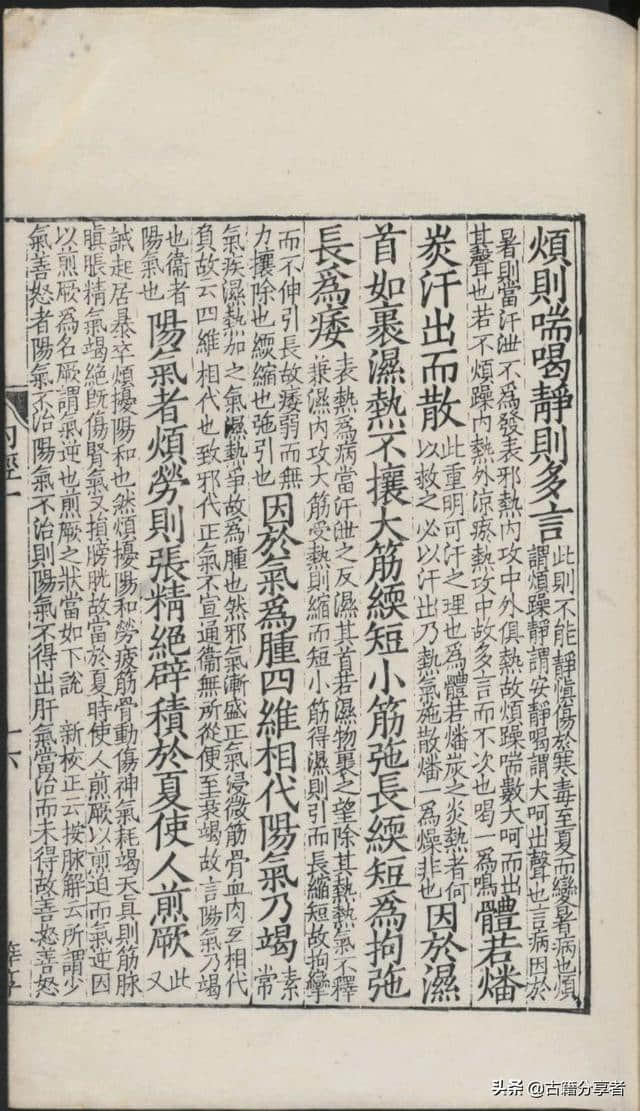 煩則喘喝靜則多言
此則不能靜慎傷於寒毒至夏而變暑病也煩
謂煩躁靜謂安靜喝謂大呵出聲也言病因於
暑則當汗泄不爲發表邪熱內攻中外俱熱故煩躁喘數大呵而出
其聲也若不煩躁內熱外涼瘀熱攻中故多言而不次也喝一爲鳴
體若燔
炭汗出而散
此重明可汗之理也爲體若燔炭之炎熱者何
以救之必以汗出乃熱氣施散燔一爲燥非也
因於濕
首如裹濕熱不攘大筋緛短小筋弛長緛短爲拘弛
長爲痿
表熱爲病當汗泄之反濕其首若濕物裹之望除其熱熱氣不釋
兼濕內攻大筋受熱則縮而短小筋得濕則引而長縮短故拘攣
而不伸引長故痿弱而無
力攘除也緛縮也弛引也
因於氣爲腫四維相代陽氣乃竭
素
常
氣疾濕熱加之氣濕熱爭故爲腫也然邪氣漸盛正氣浸微筋骨血肉互相代
負故云四維相代也致邪代正氣不宣通衞無所從便至衰竭故言陽氣乃竭
也衞者
陽氣也
陽氣者煩勞則張精絕辟積於夏使人煎厥
此
又
誡起居暴卒煩擾陽和也然煩擾陽和勞疲筋骨動傷神氣耗竭天真則筋脉
䐜脹精氣竭絕旣傷腎氣又損膀胱故當於夏時使人煎厥以煎迫而氣逆因
以煎厥爲名厥謂氣逆也煎厥之狀當如下說 新校正云按脉解云所謂少
氣善怒者陽氣不治陽氣不治則陽氣不得出肝氣當治而未得故善怒善怒
內經一
十六
头条 @古籍分享者